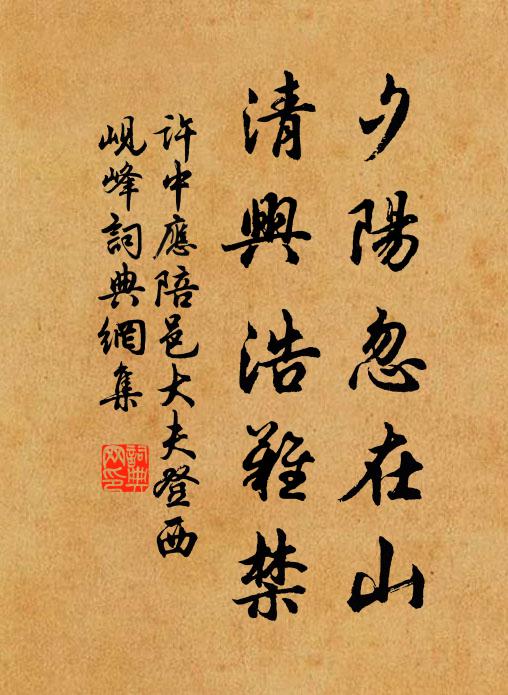 夕陽忽在山
清興浩難禁
許中應陪邑大夫登西
峴峰詞典網集
詞典
网印